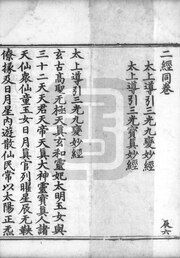 二經同卷
辰六
太上導引三光九變妙經
太上導引三光寶真妙經
太上導引三光九變妙經
玄古高聖元極天真玄和靈妃太明玉女與
三十二天天君天帝天真大神靈寶真人諸
天仙衆仙童玉女日月真官列曜星辰元
僚掾及日月星內遊散仙民常以太陽正炁